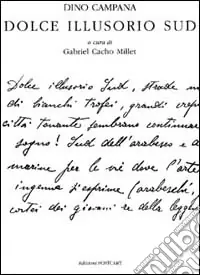 DINO CAMPANA
DOLCE ILLUSORIO SUD
a cura di
Gabriel Cacho Millet
Dolce illusorio Sud, strade
di bianchi trofei, grandi
città tonante sembrano continuare
sogno! Sud dell'arabesco e
marine per le vie dove l'arte
ingenua s'esprime (arabeschi,
cortei dei giovani re della
Edizioni POSTCART